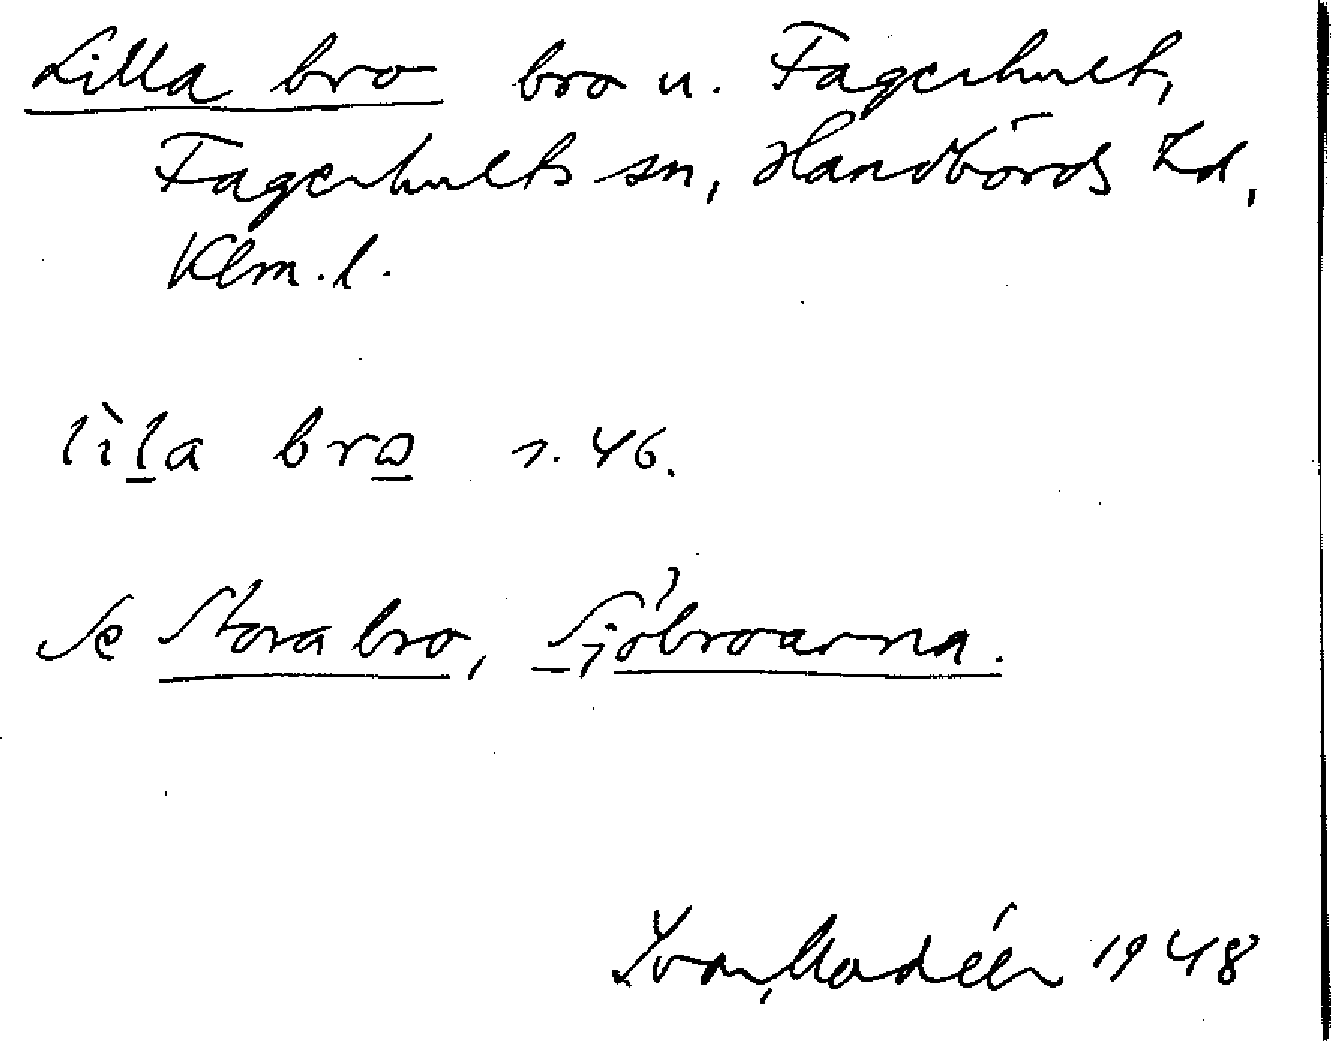 Lilla bro bro u. Fagerhult,
Fagerhults sn, Handbörds hd,
Klm. l.
lìla bro s. 46.
Se Stora bro, Sjöbroarna.
Ivar Modéer 1948